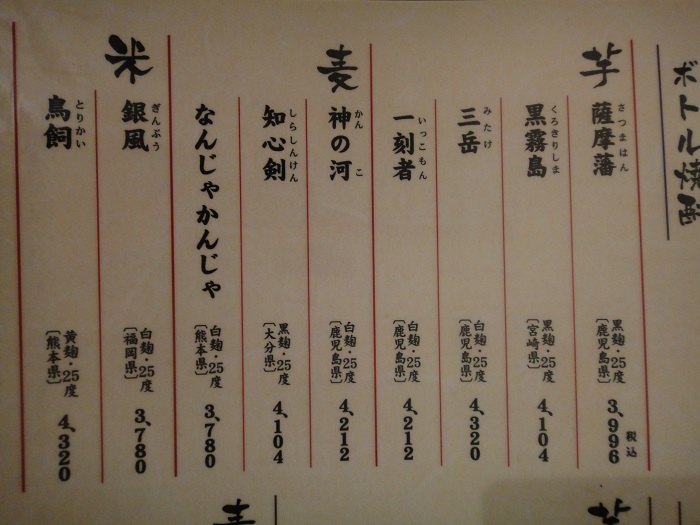 ボトル焼酎
芋
薩摩藩
さつまはん
黒麹・25度
〔鹿児島県〕
3,996
税込
黒霧島
くろきりしま
黒麹・25度
〔宮崎県〕
4,104
三岳
みたけ
白麹・25度
〔鹿児島県〕
4,320
一刻者
いっこもん
白麹・25度
〔鹿児島県〕
4,212
麦
神の河
かんこ
白麹・25度
〔鹿児島県〕
4,212
知心剣
しらしんけん
黒麹・25度
〔大分県〕
4,104
なんじゃかんじゃ
白麹・25度
〔熊本県〕
3,780
米
銀風
ぎんぷう
白麹・25度
〔福岡県〕
3,780
鳥飼
とりかい
黄麹・25度
〔熊本県〕
4,320
芋
麦